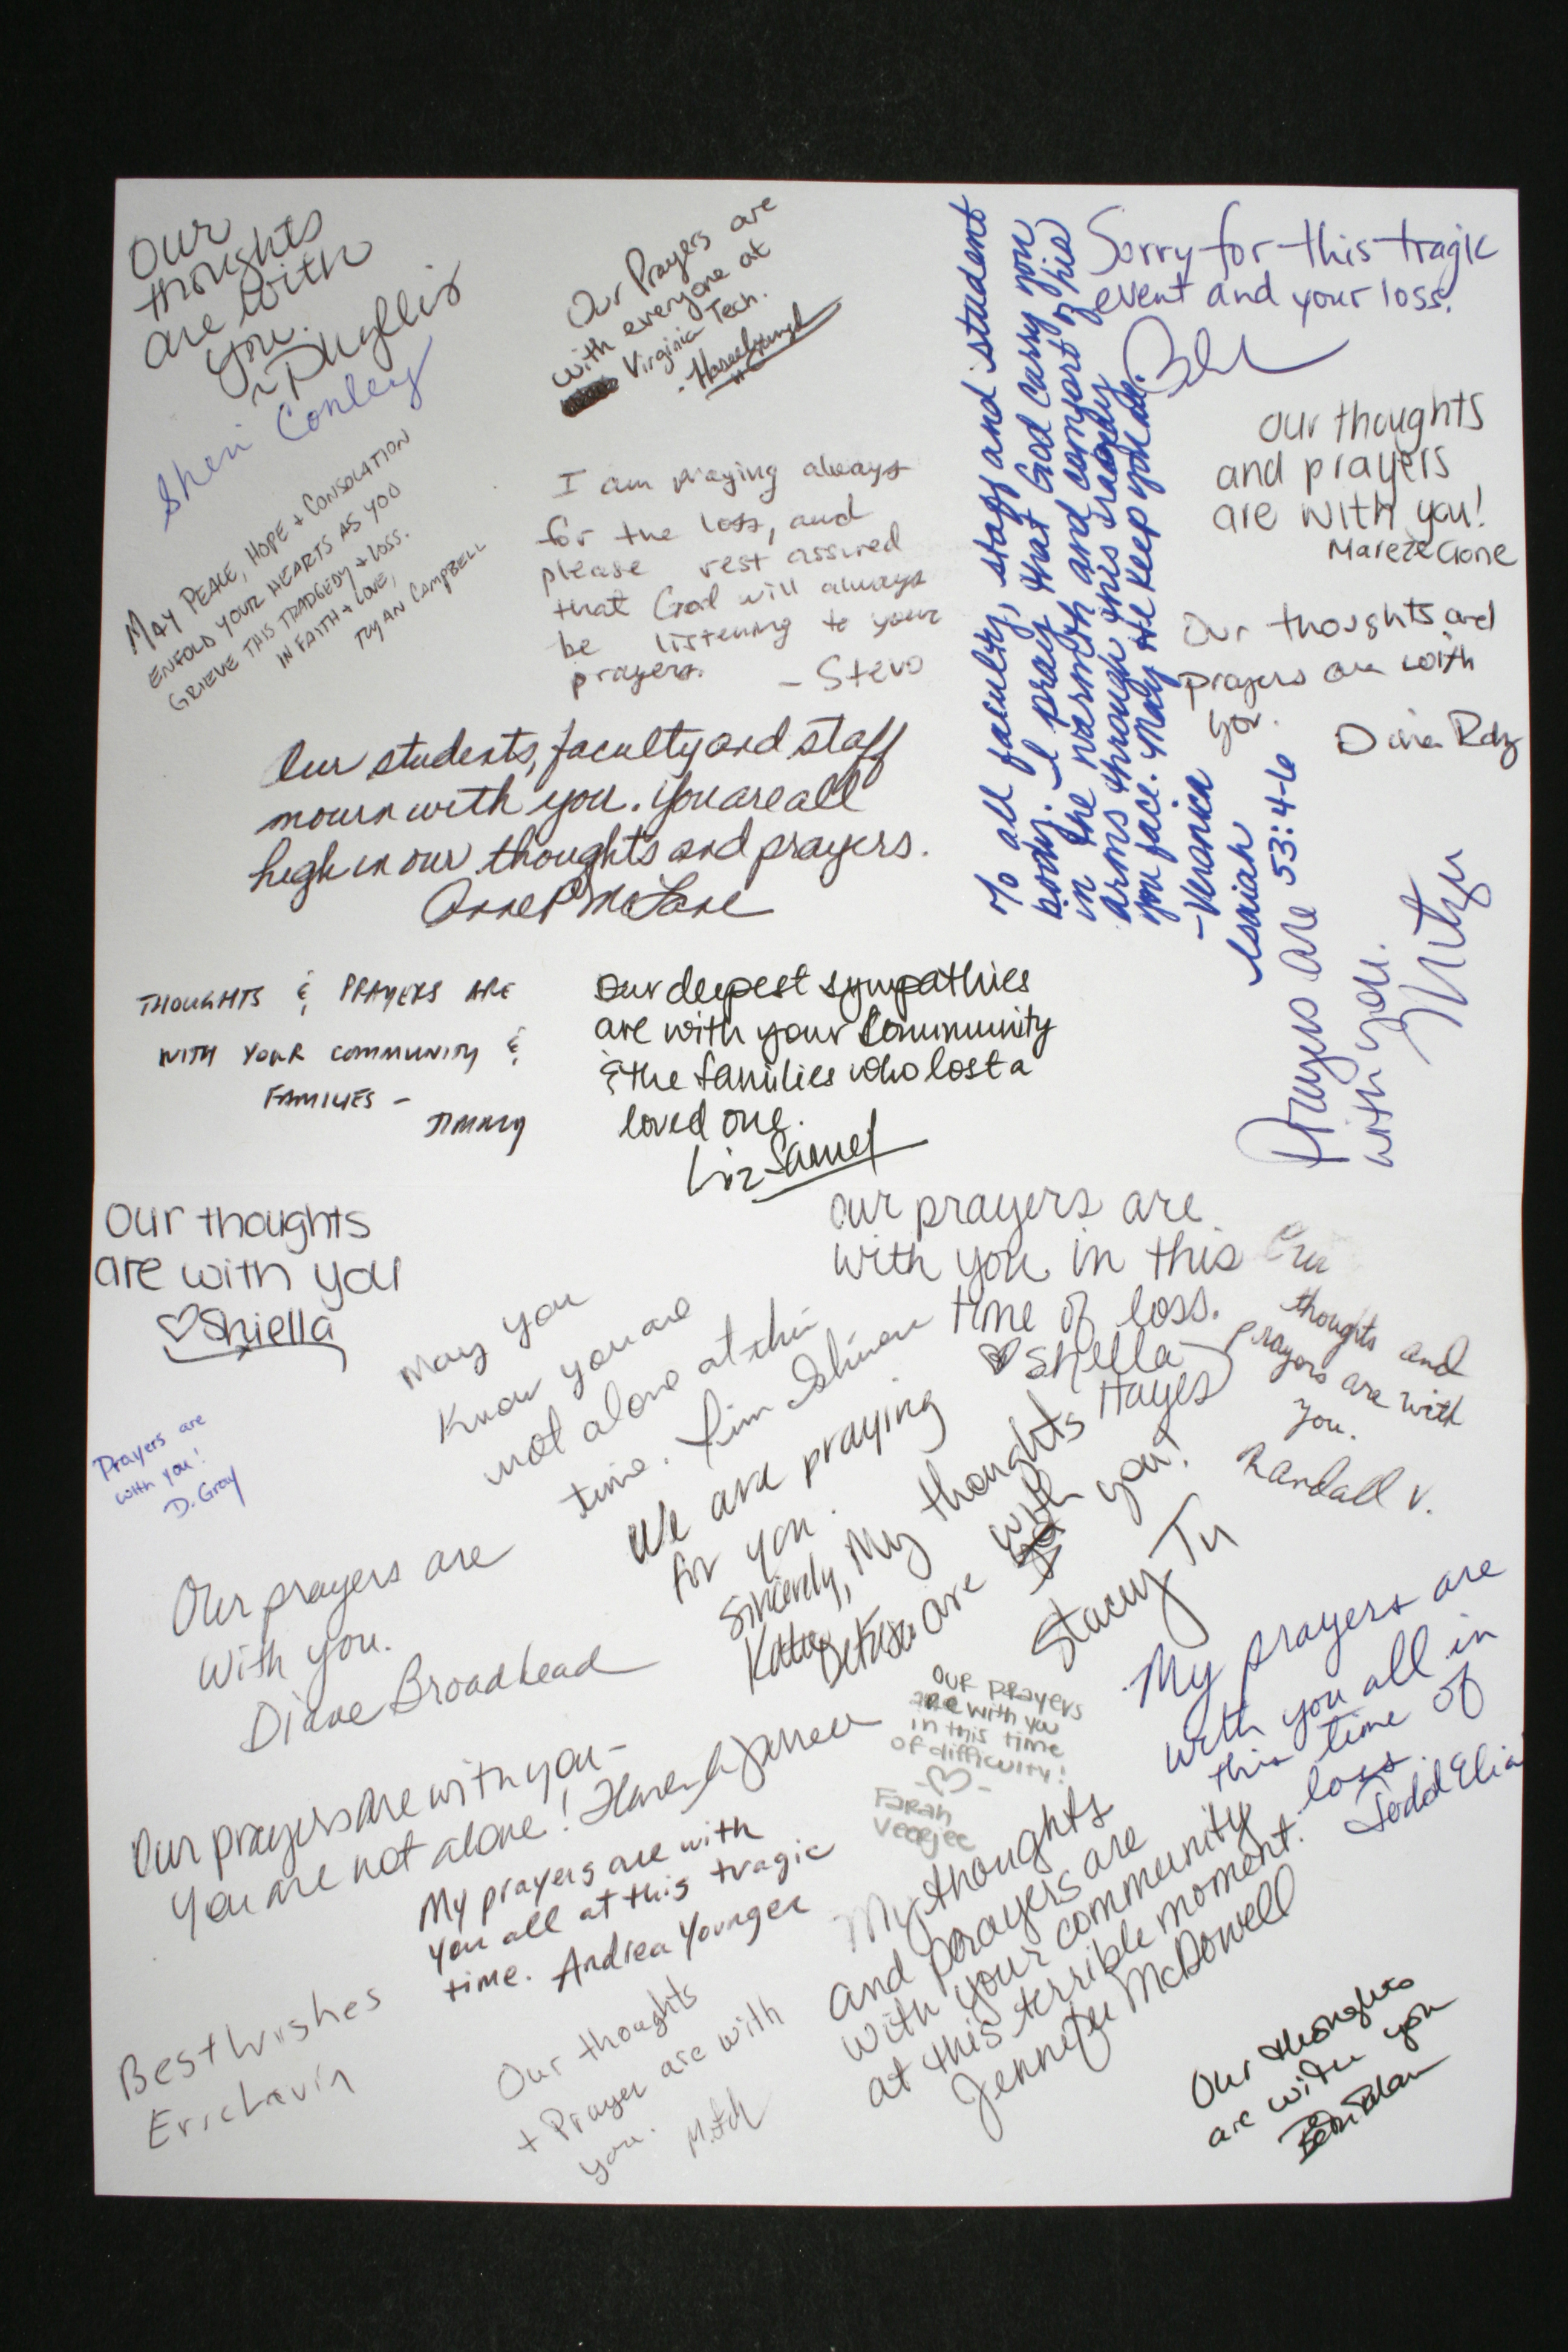 Our
thoughts
are with
you.
~ Phyllis
Sheri Conley
MAY PEACE, HOPE + CONSOLATION
ENFOLD YOUR HEARTS AS YOU
GRIEVE THIS TRADGEDY + LOSS.
IN FAITH + LOVE,
RYAN CAMPBELL
Our Prayers are
with everyone at
Virginia Tech.
I am praying always
for the loss, and
please rest assured
that God will always
be listening to your
prayers.
- Stevo
To all faculty, staff and student
body. I pray that God carry you
in the warmth and comfort of his
arms through this tragedy
you face. May He keep you
- Veronica
Isaiah 53:4-6
Sorry for this tragic
event and your loss.
our thoughts
and prayers
are with you!
Our thoughts and
prayers are with
you.
Our students, faculty and staff
mourn with you. You are all
high in our thoughts and prayers.
Anne P McLane
Prayers are
with you.
Mitzu
THOUGHTS & PRAYERS ARE
WITH YOUR COMMUNITY &
FAMILIES -
TIMMY
Our deepest sympathies
are with your Community
& the families who lost a
loved one.
Liz
our thoughts
are with you
♡ Shiella
our prayers are
with you in this
time of loss.
♡ Shella
Hayes
Our
thoughts and
prayers are with
you.
Randall V.
May you
know you are
not alone at this
time.
Prayers are
with you!
D. Gray
We are praying
for you.
Sincerely,
Katie
My thoughts
are with
you!
Stacey Tu
Our prayers are
with you.
Diane Broadhead
My prayers are
with you all in
this time of
loss.
Todd Elia
OUR PRAYERS
are with you
in this time
of difficulty!
- ♡ -
Farah
Veerjee
Our prayers are with you -
You are not alone!
My prayers are with
you all at this tragic
time. Andrea Younger
My thoughts
and prayers are
with your community
at this terrible moment.
Jennifer McDowell
Best wishes
Eric Lavin
Our thoughts
+ Prayer are with
you.
Mitch
Our thoughts
are with you